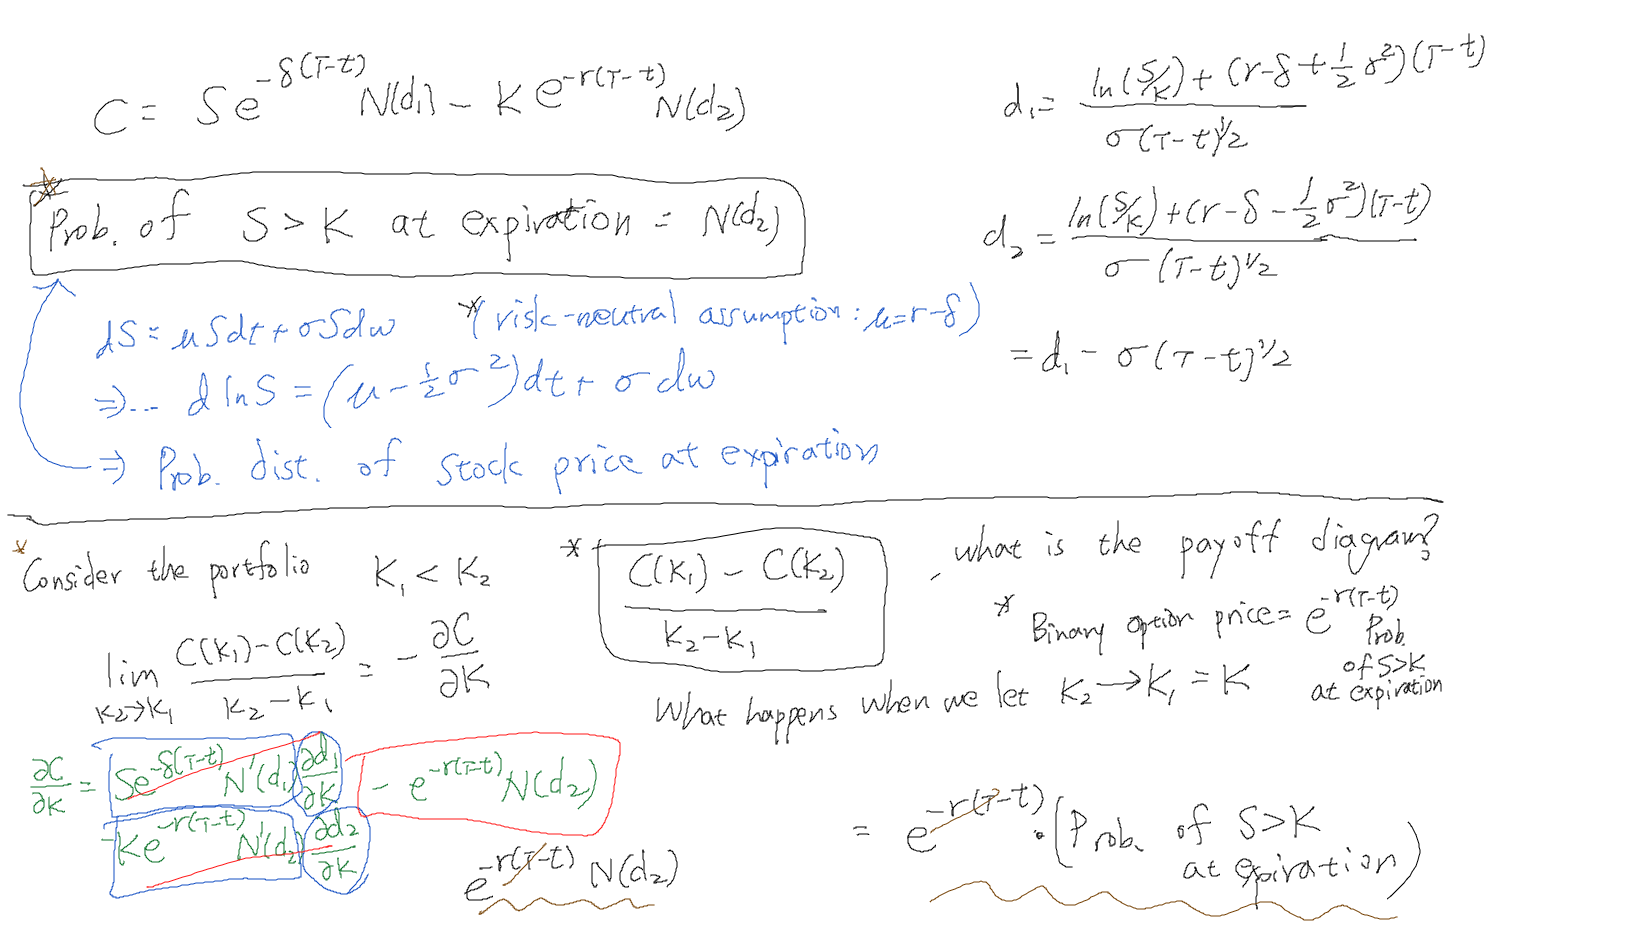 C = Se^{-δ(T-t)} N(d₁) - K e^{-r(T-t)} N(d₂)
d₁ = \frac{ln(S/K) + (r-δ+\frac{1}{2}σ²)(T-t)}{σ(T-t)^{1/2}}
Prob. of S > K at expiration = N(d₂)
d₂ = \frac{ln(S/K) + (r-δ-\frac{1}{2}σ²)(T-t)}{σ(T-t)^{1/2}}
= d₁ - σ(T-t)^{1/2}
dS = μSdt + σSdw *(risk-neutral assumption: μ=r-δ)
⇒... d lnS = (μ - \frac{1}{2}σ²)dt + σdw
⇒ Prob. dist. of stock price at expiration
* Consider the portfolio K₁ < K₂
* \frac{C(K₁) - C(K₂)}{K₂ - K₁}
, what is the payoff diagram?
* Binary option price = e^{-r(T-t)} Prob.
of S>K
at expiration
lim_{K₂→K₁} \frac{C(K₁) - C(K₂)}{K₂ - K₁} = -\frac{∂C}{∂K}
What happens when we let K₂ → K₁ = K
\frac{∂C}{∂K} = Se^{-δ(T-t)} N'(d₁) \frac{∂d₁}{∂K} - e^{-r(T-t)} N(d₂)
- Ke^{-r(T-t)} N'(d₂) \frac{∂d₂}{∂K}
e^{-r(T-t)} N(d₂)
= e^{-r(T-t)} · (Prob. of S>K
at expiration)